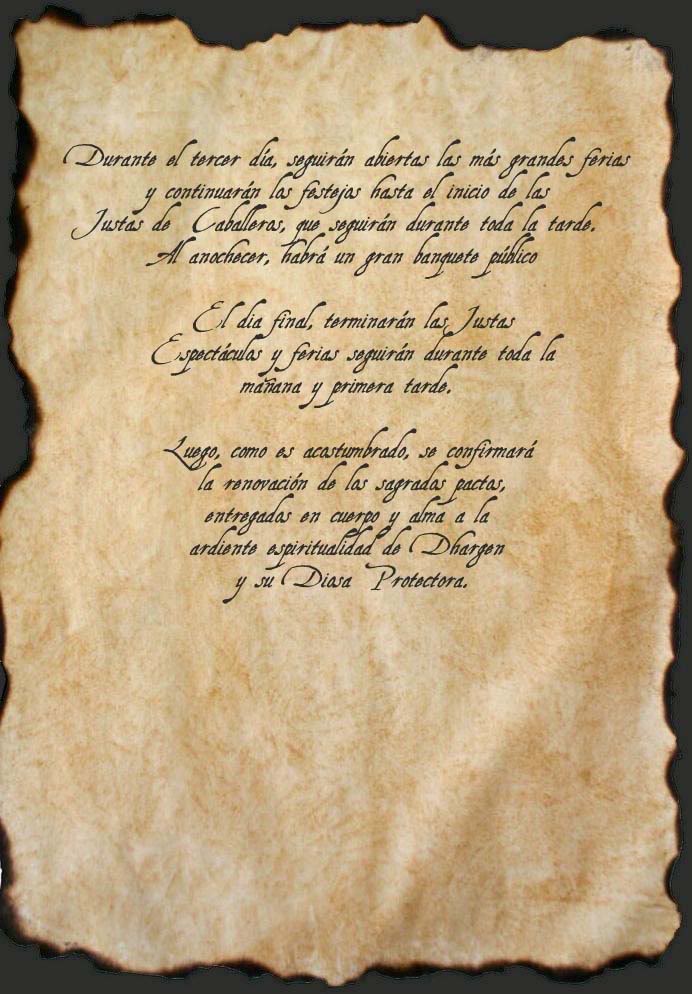 Durante el tercer día, seguirán abiertas las más grandes ferias
y continuarán los festejos hasta el inicio de las
Justas de Caballeros, que seguirán durante toda la tarde.
Al anochecer, habrá un gran banquete público
El dia final, terminarán las Justas
Espectáculos y ferias seguirán durante toda la
mañana y primera tarde.
Luego, como es acostumbrado, se confirmará
la renovación de los sagrados pactos,
entregados en cuerpo y alma a la
ardiente espiritualidad de Dhargen
y su Diosa Protectora.